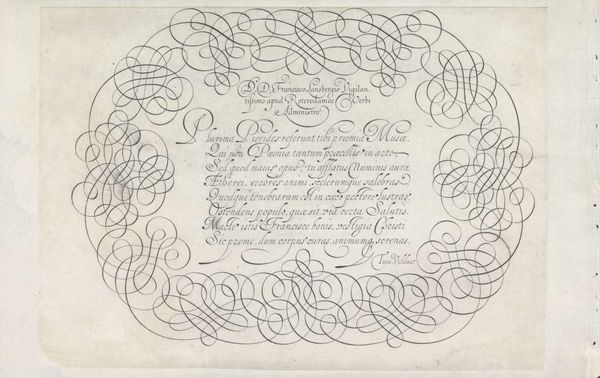 D. D. Francisco Lansbergio Vigilan,
tissimo apud Roterodamos Verbi
Administro.
Plurima Pierides referunt tibi præmia Musæ.
Qui non Pæonia tantum præcellis in arte,
Sed quod maius opus, tu afflatus Numinis aura
Æthorei, errores animi, scelerumque salebras
Quodque tenebrarum est in cæco pectore lustras,
Ostendens populo, quæ sit via certa Salutis.
Macte istis Francisce bonis, vestigia Christi
Sic preme, dum corpus curas, animumq serenas.